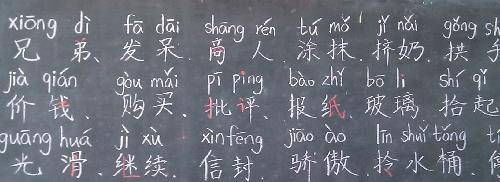 xiōng dì fā dāi shāng rén tú mǒ jǐ nǎi gǒng
兄 弟、发 呆、商 人、涂 抹、挤 奶、拱
jià qián gòu mǎi pī píng bào zhǐ bō li shí qǐ
价 钱、购 买、批 评、报 纸、玻 璃、拾 起
guāng huá jì xù xìn fēng jiāo ào līn shuǐ tǒng
光 滑、继 续、信 封、骄 傲、拎 水 桶、